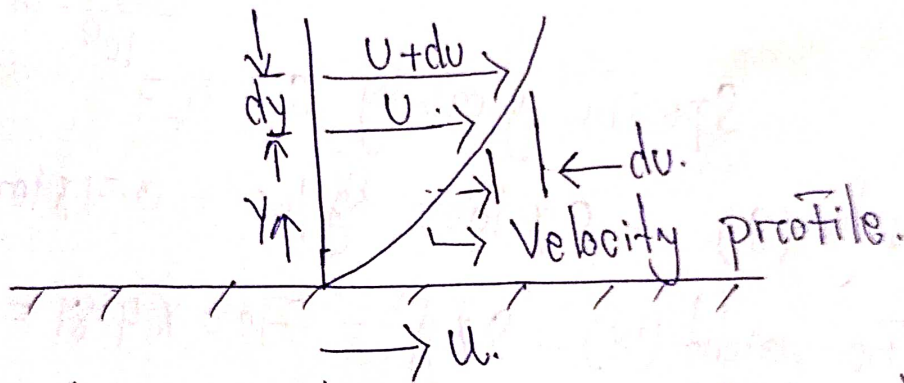 U+du
dy
U.
du.
Y
Velocity profile.
u.